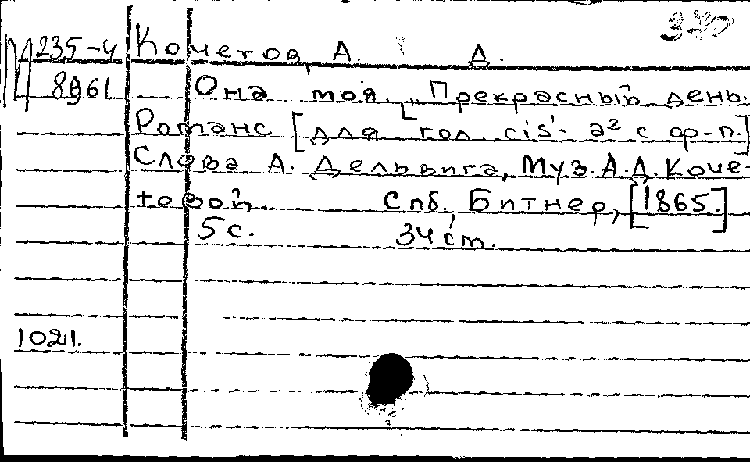 370
М 235-4 Кочетова, А. Д.
8961 Она моя. [Прекрасный день.
Романс [для гол. cis'- a² с ф-п.]
Слова А. Дельвига, Муз. А.Д. Коче-
товой. Спб, Битнер, [1865.]
5 с. 34 см.
1021.